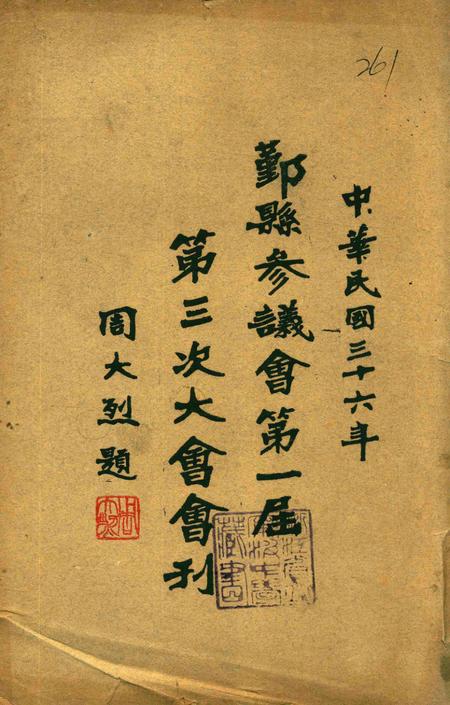 261
中華民國三十六年
鄞縣參議會第一屆
第三次大會會刊
周大烈題